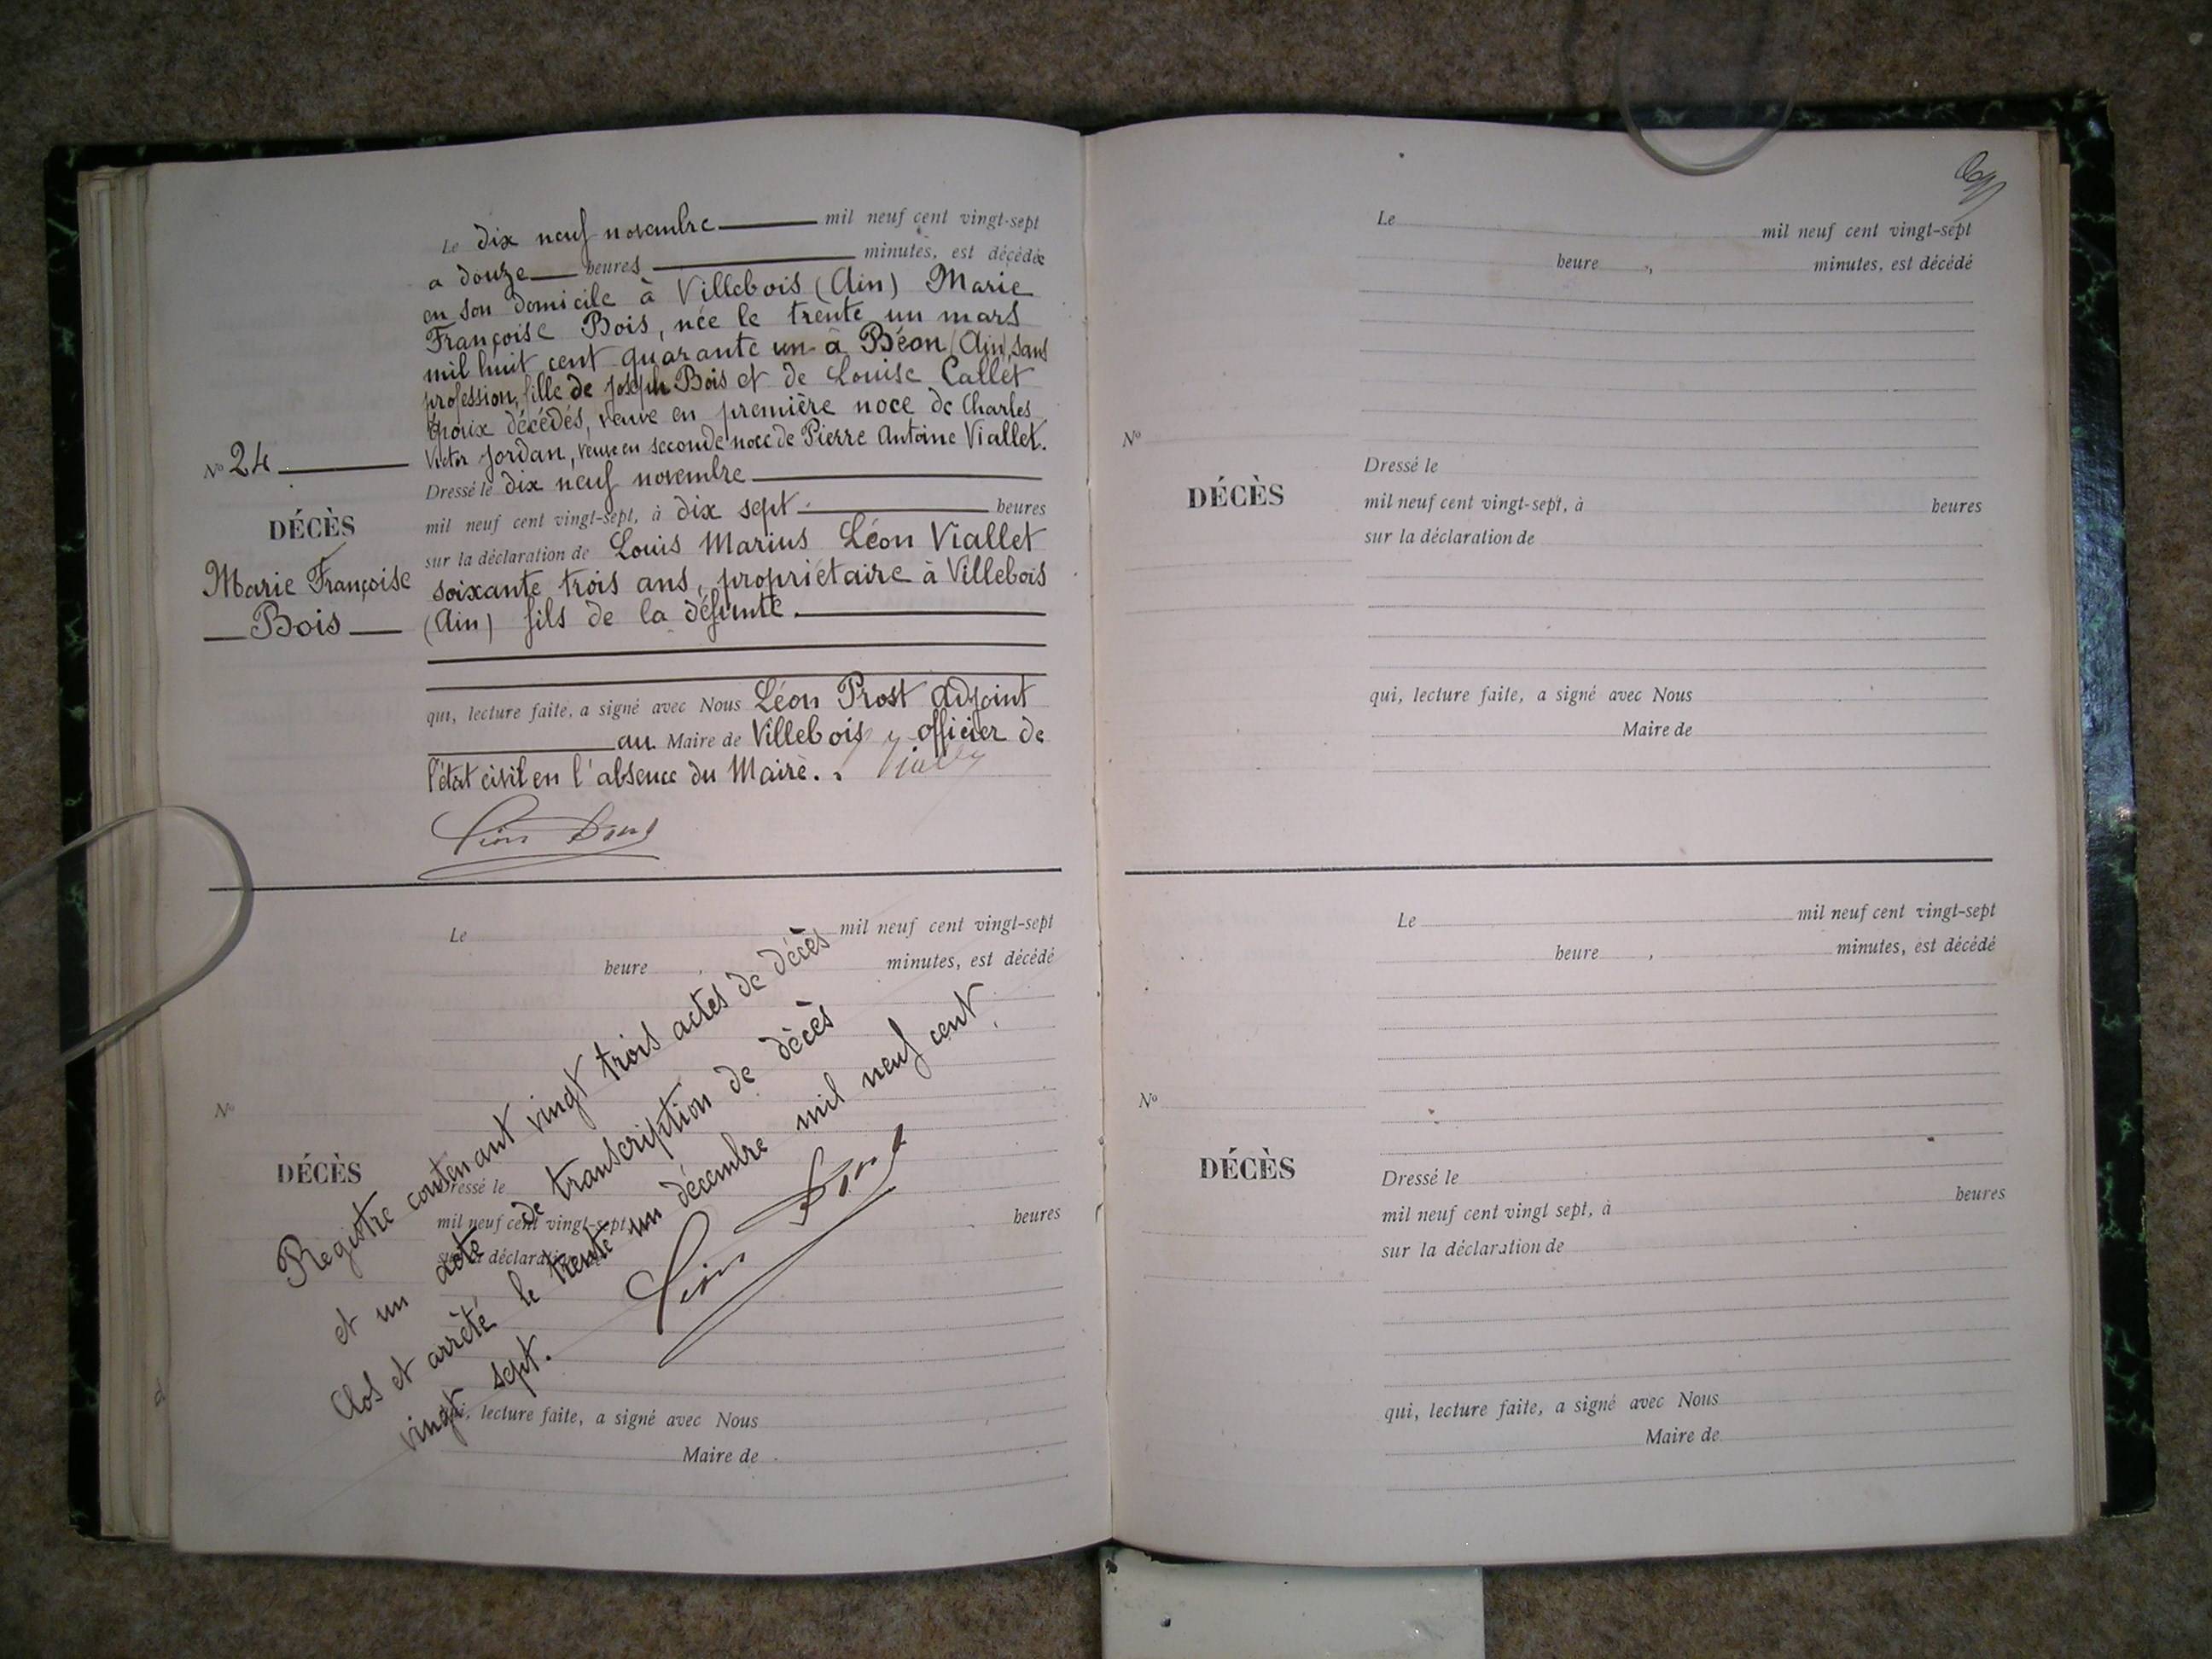 Le dix neuf novembre mil neuf cent vingt-sept
a douze heures minutes, est décédée
en son domicile à Villebois (Ain) Marie
Françoise Bois, née le trente un mars
mil huit cent quarante un à Béon (Ain), sans
profession, fille de Joseph Bois et de Louise Callet
époux décédés, veuve en première noce de Charles
Victor Jordan, veuve en seconde noce de Pierre Antoine Viallet.
Nº 24
DÉCÈS
Marie Françoise
Bois
Dressé le dix neuf novembre
mil neuf cent vingt-sept, à dix sept heures
sur la déclaration de Louis Marius Léon Viallet
soixante trois ans, propriétaire à Villebois
(Ain) fils de la défunte.
qui, lecture faite, a signé avec Nous Léon Prost Adjoint
au Maire de Villebois officier de
l'état civil en l'absence du Maire. Viallet
Léon Prost
Le mil neuf cent vingt-sept
heure , minutes, est décédé
Nº
DÉCÈS
Dressé le
mil neuf cent vingt-sept, heures
sur la déclaration de
qui, lecture faite, a signé avec Nous
Maire de
Registre contenant vingt trois actes de décès
et un acte de transcription de décès
Clos et arrêté le trente un décembre mil neuf cent
vingt sept.
Léon Prost
Le mil neuf cent vingt-sept
heure , minutes, est décédé
Nº
DÉCÈS
Dressé le
mil neuf cent vingt-sept, à heures
sur la déclaration de
qui, lecture faite, a signé avec Nous
Maire de
Le mil neuf cent vingt-sept
heure , minutes, est décédé
Nº
DÉCÈS
Dressé le
mil neuf cent vingt sept, à heures
sur la déclaration de
qui, lecture faite, a signé avec Nous
Maire de